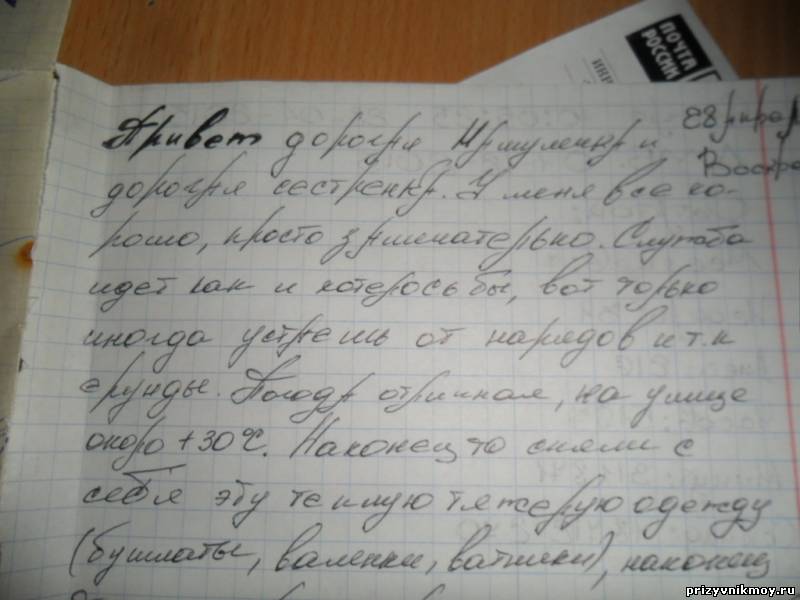 ПОЧТА
РОССИИ
28 апреля
Привет дорогая Мамуленька и
дорогая сестренка. У меня все хо-
рошо, просто замечательно. Служба
идет как и хотелось бы, вот только
иногда устаешь от нарядов и т.к
ерунды. Погода отличная, на улице
около +30°С. Наконец то сняли с
себя эту теплую тяжелую одежду
(бушлаты, валенки, ватники), наконец
prizyvnikmoy.ru